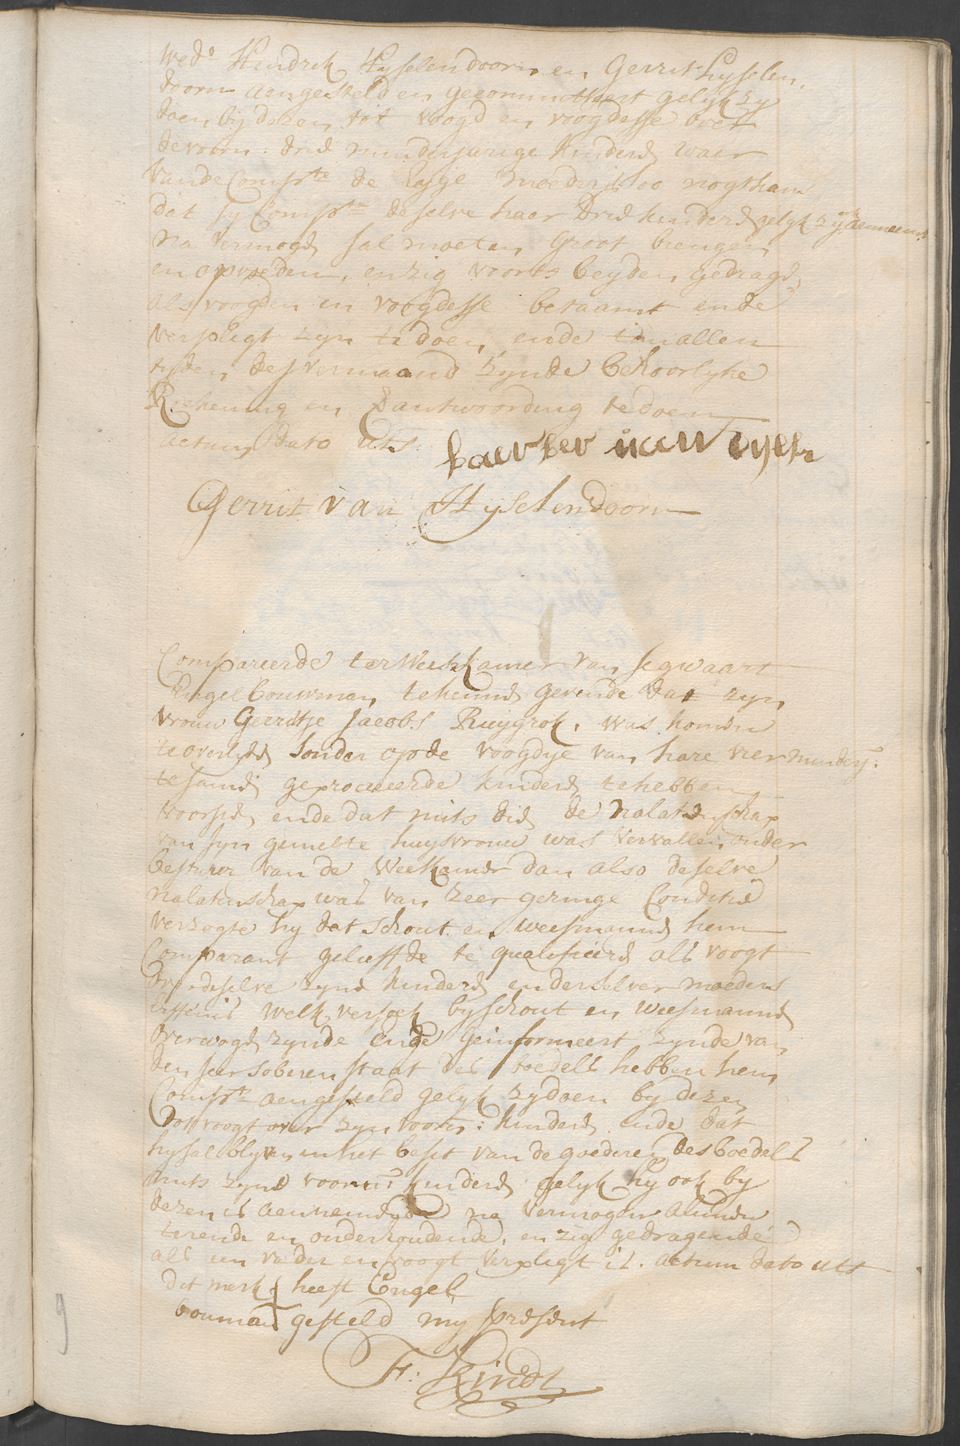 wed.e Hendrik Hyselendoorn en Gerrit hyselen,
doorn aengesteld en gecommitteert gelyk zy
doen by dezen tot voogd en voogdesse over
de voorn: drie minderjarige kinders waer
van de Compte de
dat sy Compte deselve haer drie kinders gelyk zy ook aenneemt
na vermoge sal moeten groot brengen
en opvoeden, en zig voorts beyden gedrage
als voogden en voogdesse betaamt ende
verpligt zyn te doen, ende ten allen
tyden des vermaand zynde behoorlyke
Rekening en Vantwoording te doen
actum dato uts.
Gerrit van Hyselendoorn
Compareerde ter Weeskamer van Segwaart
Engel bouwman, te kennen gevende dat zyn
vrouw Geertje Jacobs Ruygrok, was komen
te overlyde sonder op de voogdye van hare vier minderj:
te samen geprocreerde kinders te hebben
voorsien, ende dat mits dien de nalatenschap
van syn gemelte huysvrouw was vervallen onder
bestuur van de Weeskamer dan also deselve
nalatenschap was van zeer geringe Conditie
verzogte hy dat schout en weesmannen hem
Comparant gelieffde te qualificeeren als voogt
over deselve zyne kinders en derselver moeders
erffenis welk versoek by schout en weesmannen
overwoge zynde ende geinformeert zynde van
den seer soberen staat des boedels hebben hem
Compt aengesteld gelyk zy doen by dezen
tot voogt over zyn voorn: kinders ende dat
hy sal blyven in het besit van de goederen des boedels
mits zyne voorn: kinders gelyk hy ook by
dezen is aennemende na vermogen alimen
terende en onderhoudende, en zig gedragende
als een vader en voogt verpligt is. actum dato uts
dit merk heeft Engel
bouman gesteld my present
F: Kindt
9